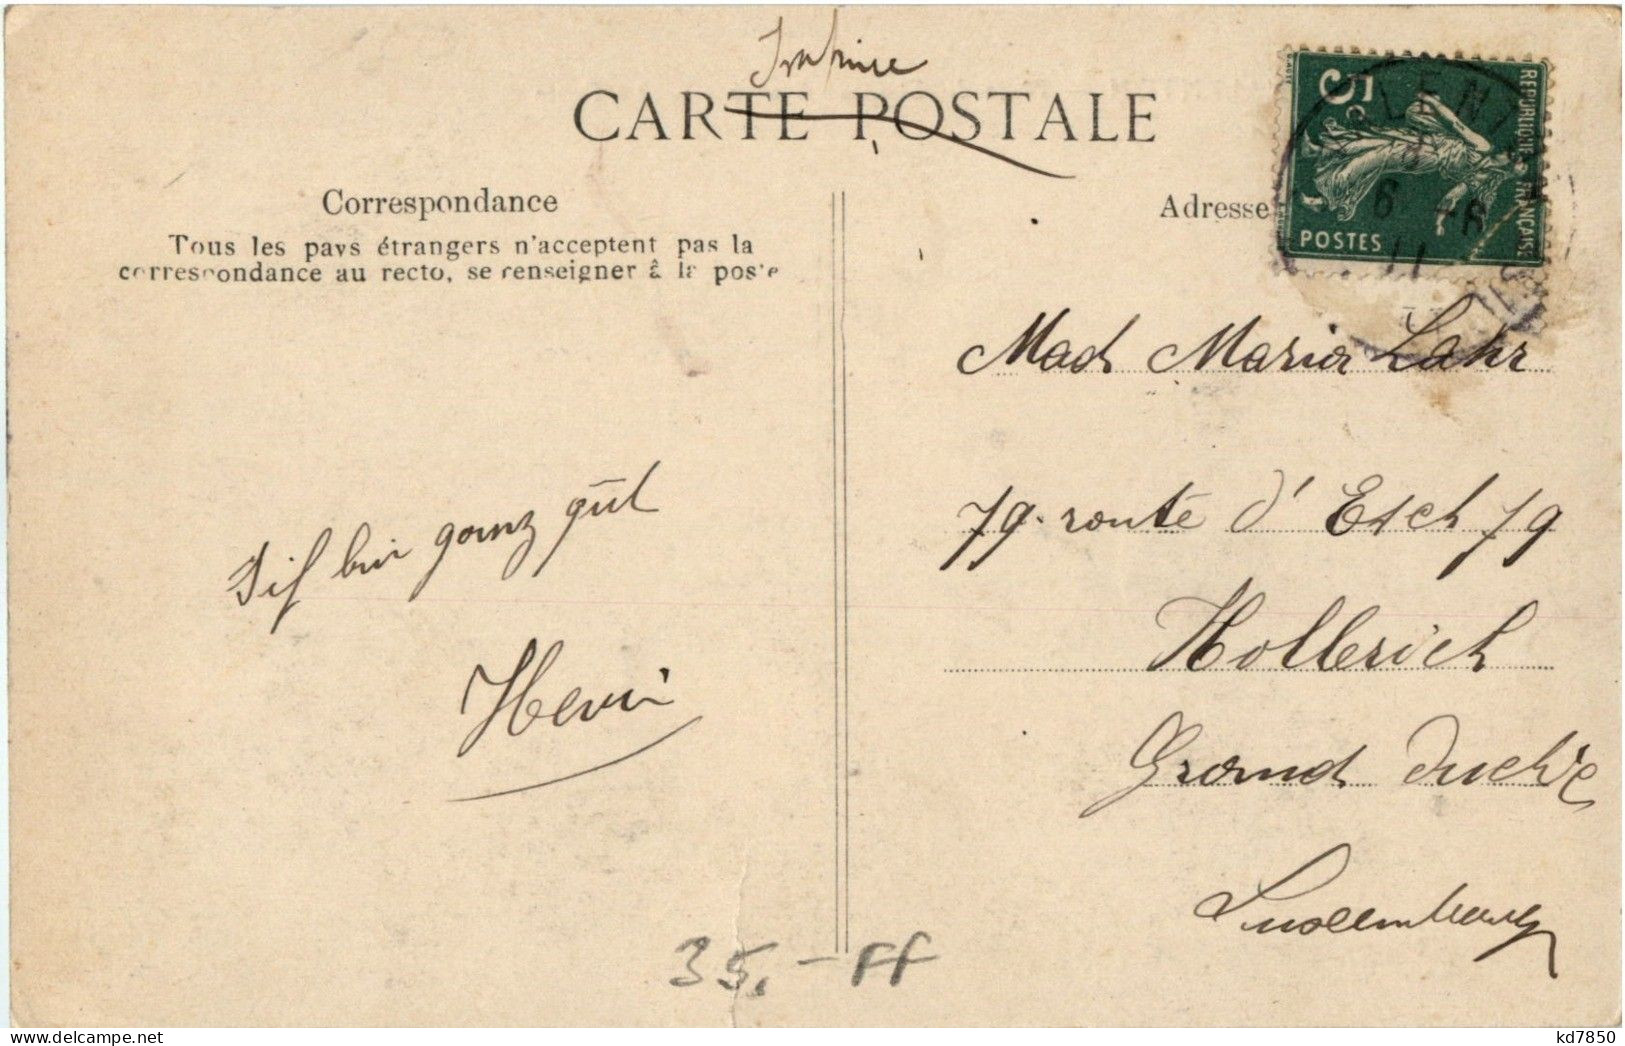 Imprimé
CARTE POSTALE
Correspondance
Tous les pays étrangers n'acceptent pas la
correspondance au recto, se renseigner à la poste
Adresse
5
REPUBLIQUE FRANÇAISE
POSTES
6 -6
11
Mad Maria Lahr
79. route d'Esch 79
Hollerich
Grand Duché
Luxembourg
bin ganz gūt
Henri
35,- FF
kd7850